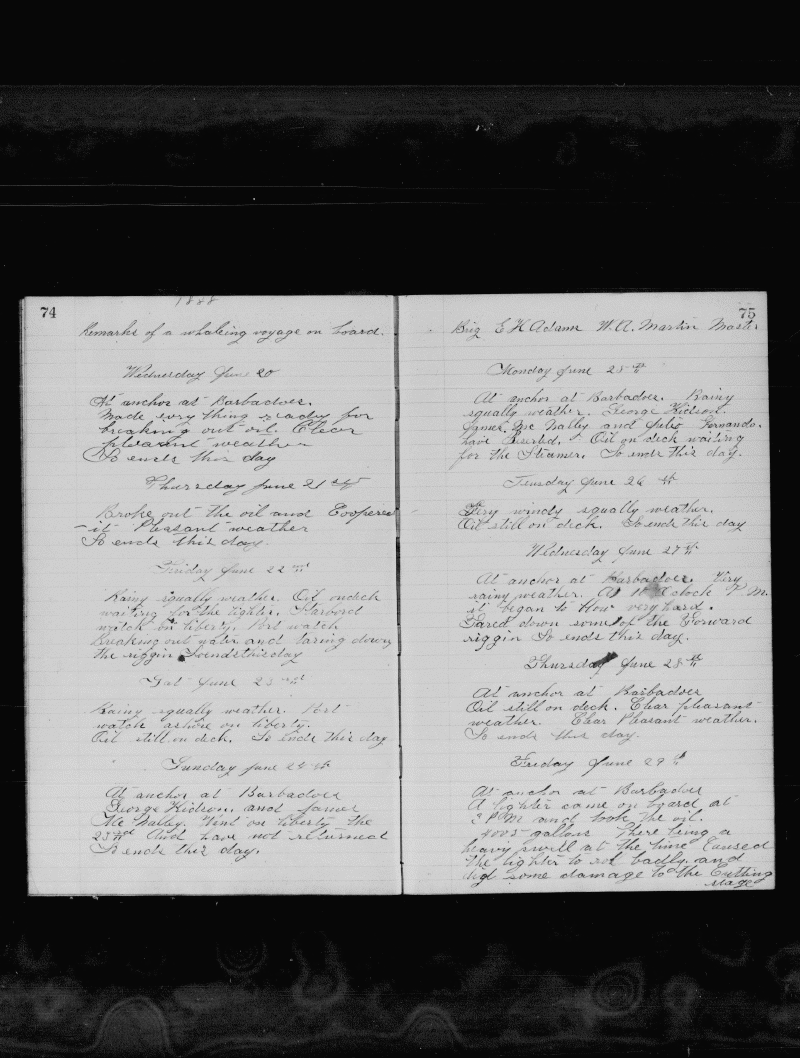 1888
74
Remarks of a whaleing voyage on board.
Wednesday June 20
At anchor at Barbadoes.
Made every thing ready for
breaking out oil. Clear
pleasant weather
So ends this day
Thursday June 21 st
Broke out the oil and Coopered
- it Pleasant weather
So ends this day.
Friday June 22 nd
Rainy squally weather. Oil on deck
waiting for the lighter. Starbord
watch on liberty. Port watch
Breaking out water and taring down
the riggin So ends this day
Sat June 23 rd
Rainy squally weather. Port
watch ashore on liberty.
Oil still on deck. So ends this day
Sunday June 24 th
At anchor at Barbadoes
George Kidson. and James
Mc Nalley. Went on liberty the
23 rd And have not returned
So ends this day.
75
Brig E H Adams W. A. Martin Mast.
Monday June 25 th
At anchor at Barbadoes. Rainy
squally weather. George Kidson.
James Mc Nalley and Julio Fernando.
have Deserted. Oil on deck waiting
for the Steamer. So ends this day.
Tuesday June 26 th
Very windy squally weather.
Oil still on deck. So ends this day
Wednesday June 27 th
At anchor at Barbadoes. Very
rainy weather. At 10 Oclock P. M.
it began to blow very hard.
Tared down some of the Forward
riggin So ends this day.
Thursday June 28 th
At anchor at Barbadoes
Oil still on deck. Clear pleasant
weather. Clear Pleasant weather.
So ends this day.
Friday June 29 th
At anchor at Barbadoes
A lighter came on board at
3 P M and took the oil.
4005 gallons There being a
heavy swell at the time Caused
the lighter to rol badly. and
did some damage to the Cutting
stage